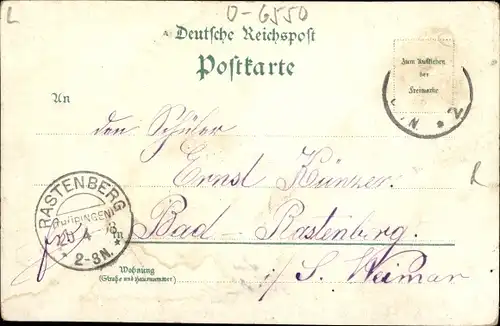 L
O-6550
Deutsche Reichspost
Postkarte
Zum Aufkleben
der
Freimarke
An
den Schüler
Ernst Künzer.
RASTENBERG
(THÜRINGEN)
4
* 2-3N. *
Bad-Rastenberg.
Wohnung
(Straße und Hausnummer)
i/S. Weimar